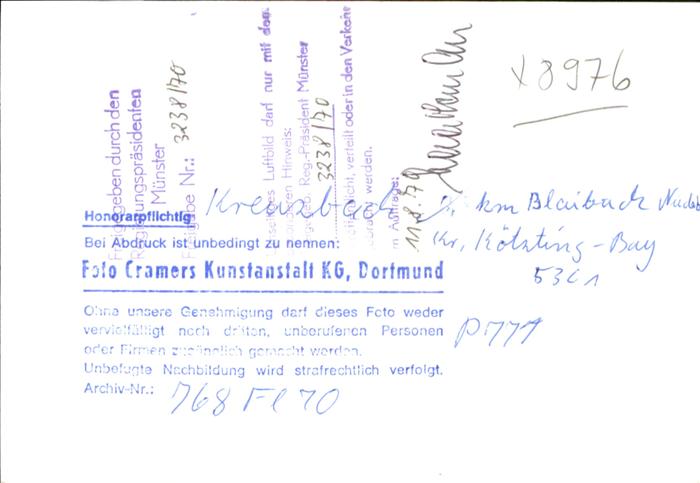 Freigegeben durch den
Regierungspräsidenten
Münster
Freigabe Nr.: 3238/70
Luftbild darf nur mit dem
Hinweis:
Reg.-Präsident Münster
3238/70
verteilt oder in den Verkehr
werden.
Auftrage:
x 8976
Honorarpflichtig
Bei Abdruck ist unbedingt zu nennen:
Foto Cramers Kunstanstalt KG, Dortmund
Ohne unsere Genehmigung darf dieses Foto weder
vervielfältigt noch dritten, unberufenen Personen
oder Firmen zugänglich gemacht werden.
Unbefugte Nachbildung wird strafrechtlich verfolgt.
Archiv-Nr.: 768 Fl 70
km Blaibach
Kr. Kötzting - Bay